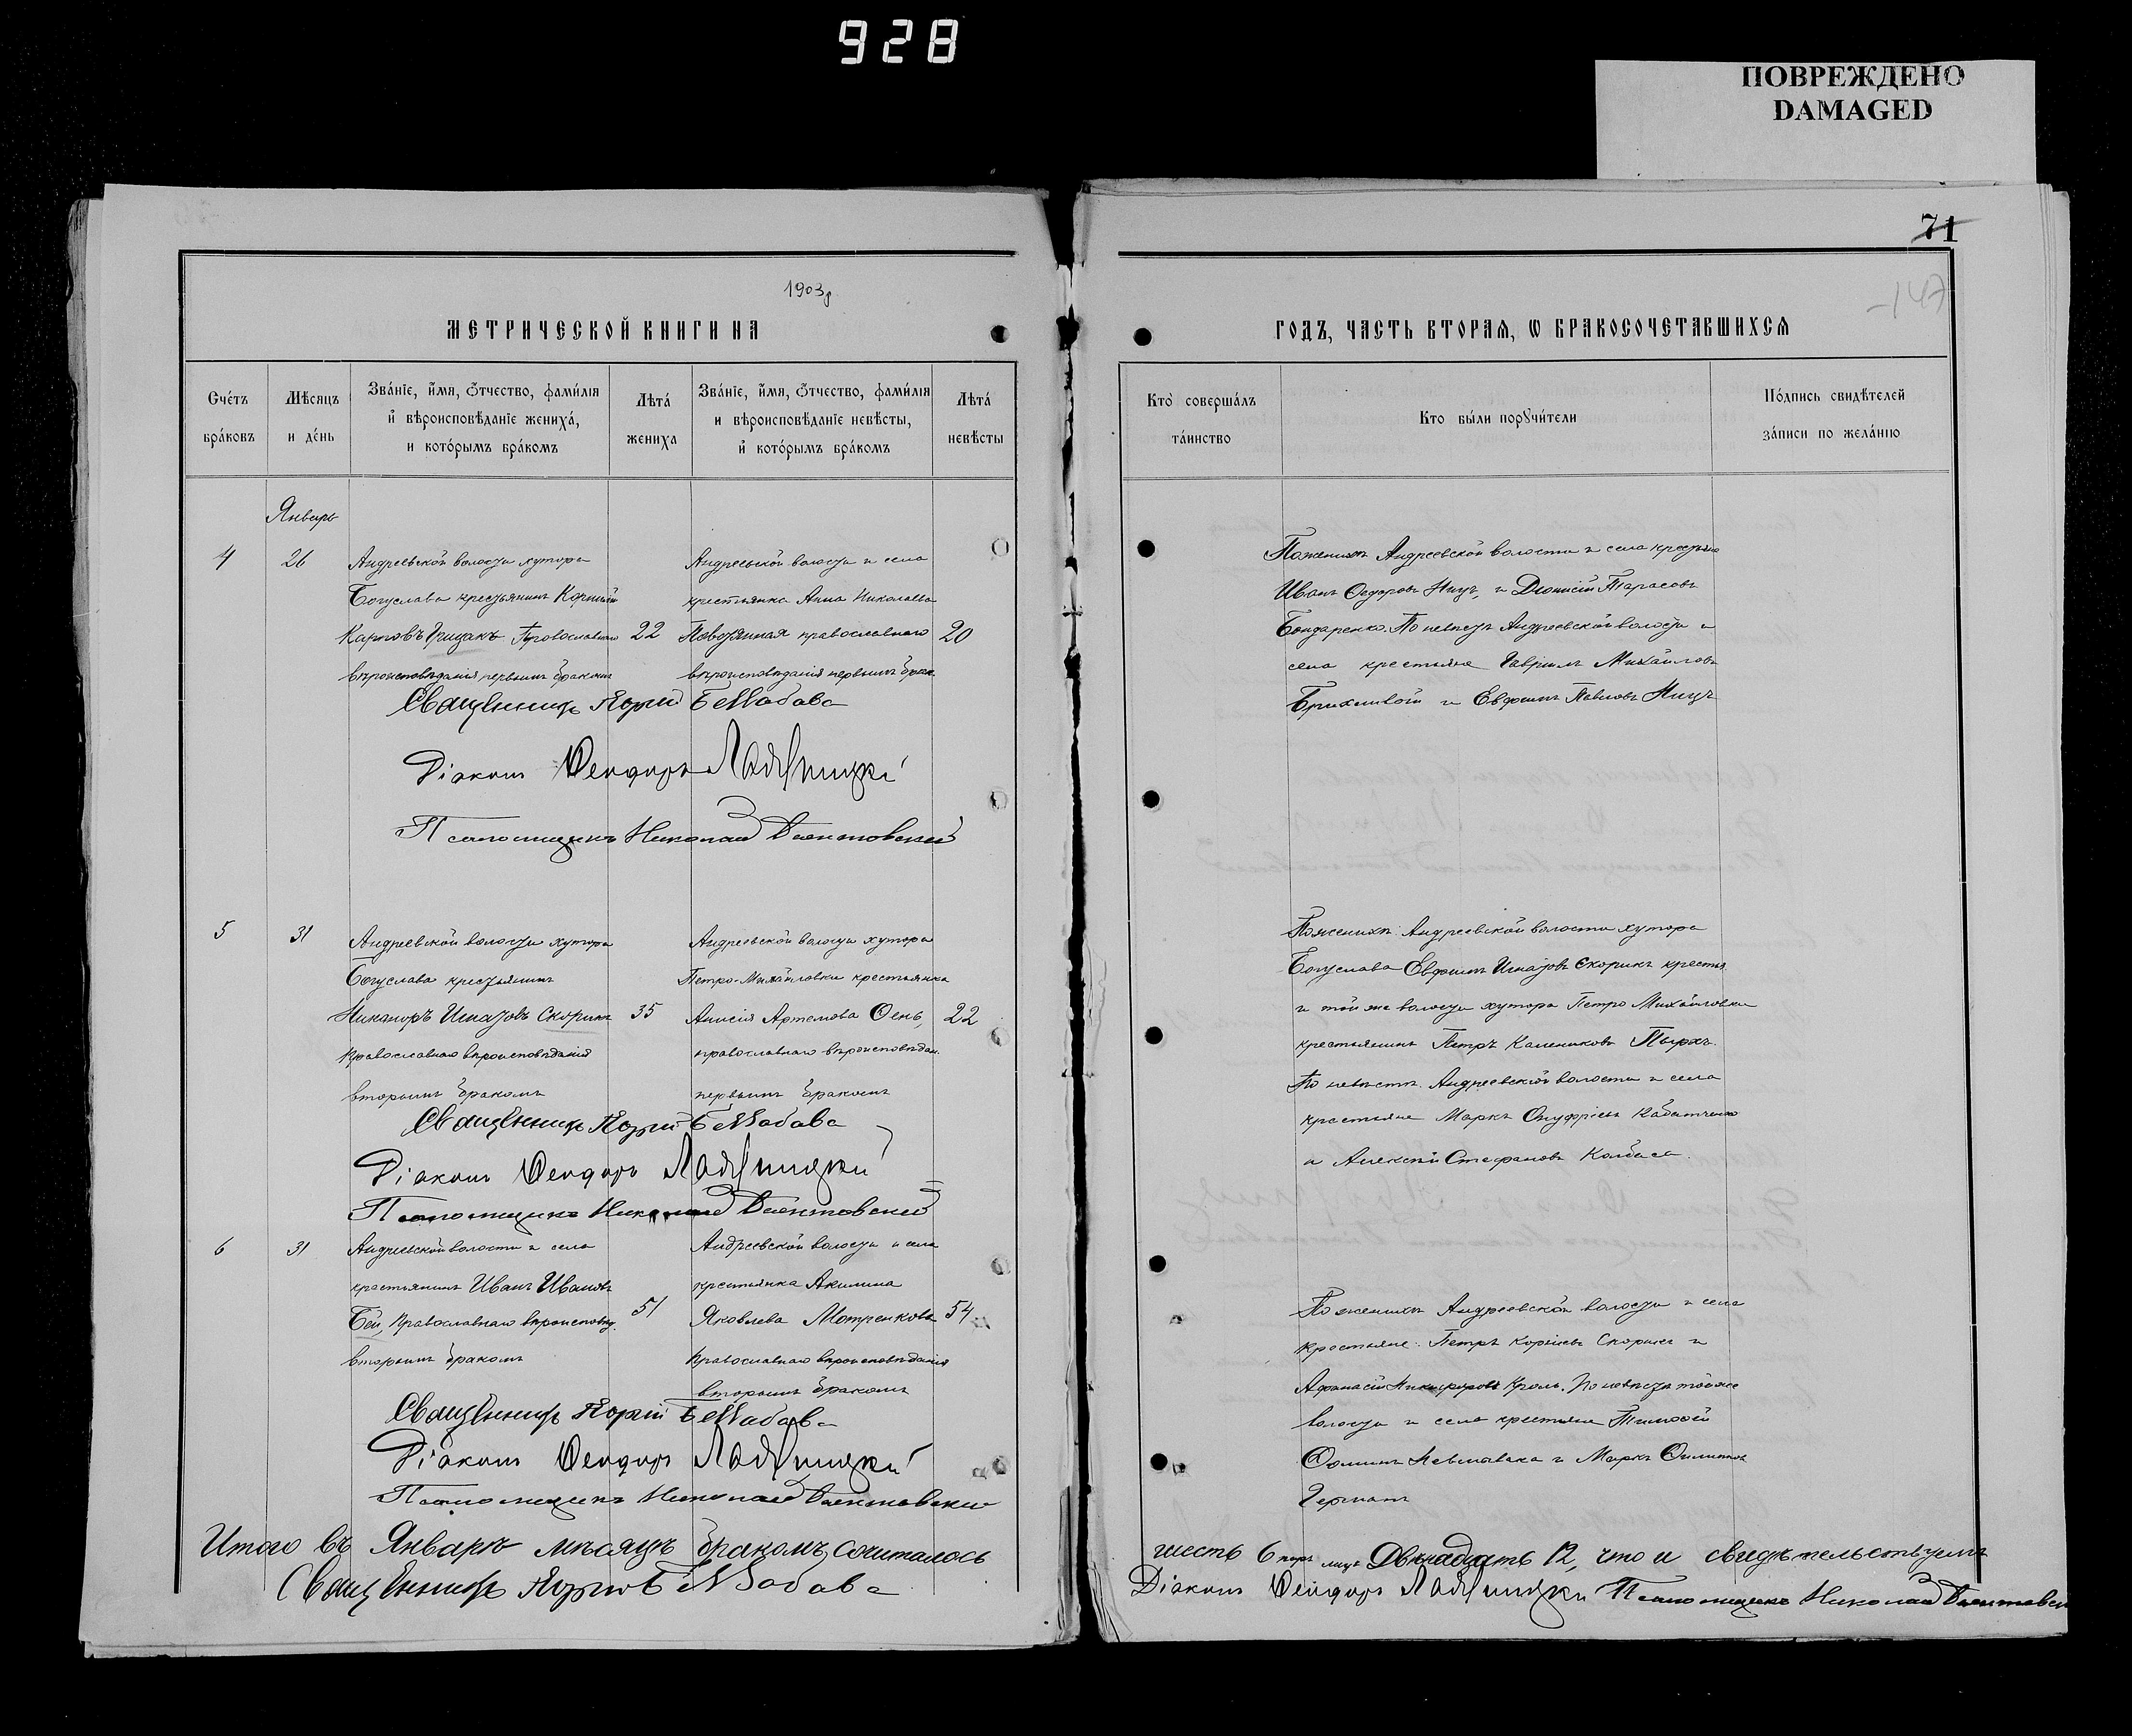 928
ПОВРЕЖДЕНО
DAMAGED
71
-147
1903 г
МЕТРИЧЕСКОЙ КНИГИ НА
ГОДЪ, ЧАСТЬ ВТОРАЯ, Ѡ БРАКОСОЧЕТАВШИХСЯ
Счетъ браковъ
Мѣсяцъ и день
Званіе, имя, отчество, фамилія
и вѣроисповѣданіе жениха,
и которымъ бракомъ
Лѣта жениха
Званіе, имя, отчество, фамилія
и вѣроисповѣданіе невѣсты,
и которымъ бракомъ
Лѣта невѣсты
Кто совершалъ таинство
Кто были поручители
Подпись свидѣтелей
записи по желанію
Январь
4
26
Андреевской волости хутора
Богуслава крестьянинъ Корнилій
Карповъ Грицакъ Православнаго
вѣроисповѣданія первымъ бракомъ
22
Андреевской волости и села
крестьянка Анна Николаева
православнаго
вѣроисповѣданія первымъ брак.
20
Священникъ
Діаконъ Ѳеодоръ
Псаломщикъ Николай
По женихѣ Андреевской волости и села крестьяне
Иванъ Ѳедоровъ Ницъ, и Діонисій Тарасовъ
Бондаренко. По невѣстѣ Андреевской волости и
села крестьяне Гавріилъ Михайловъ
и Евфимъ Павловъ Ницъ
5
31
Андреевской волости хутора
Богуслава крестьянинъ
Никаноръ Игнатовъ Скорикъ
православнаго вѣроисповѣданія
вторымъ бракомъ
35
Андреевской волости хутора
Петро-Михайловки крестьянка
Анисія Артемова Сень,
православнаго вѣроисповѣдан.
первымъ бракомъ
22
Священникъ
Діаконъ Ѳеодоръ
Псаломщикъ Николай
По женихѣ Андреевской волости хутора
Богуслава Евфимъ Игнатовъ Скорикъ крестья
и той же волости хутора Петро Михайловки
крестьянинъ Петръ Калениковъ
По невѣстѣ Андреевской волости и села
крестьяне Маркъ Онуфріевъ
и Алексѣй Стефановъ Колбаса.
6
31
Андреевской волости и села
крестьянинъ Иванъ Ивановъ
Бей, Православнаго вѣроисповѣд.
вторымъ бракомъ
51
Андреевской волости и села
крестьянка Акилина
Яковлева Мотренкова
Православнаго вѣроисповѣданія
вторымъ бракомъ
54
Священникъ
Діаконъ Ѳеодоръ
Псаломщикъ Николай
По женихѣ Андреевской волости и села
крестьяне: Петръ Скорикъ и
Афанасій Никифоровъ Кроль. По невѣстѣ той же
волости и села крестьяне Тимофей
Ѳоминъ и Маркъ Филиповъ
Германъ
Итого въ Январѣ мѣсяцѣ бракомъ сочиталось
шесть 6 паръ лицъ Двѣнадцать 12, что и свидѣтельствуемъ
Священникъ
Діаконъ Ѳеодоръ Псаломщикъ Николай